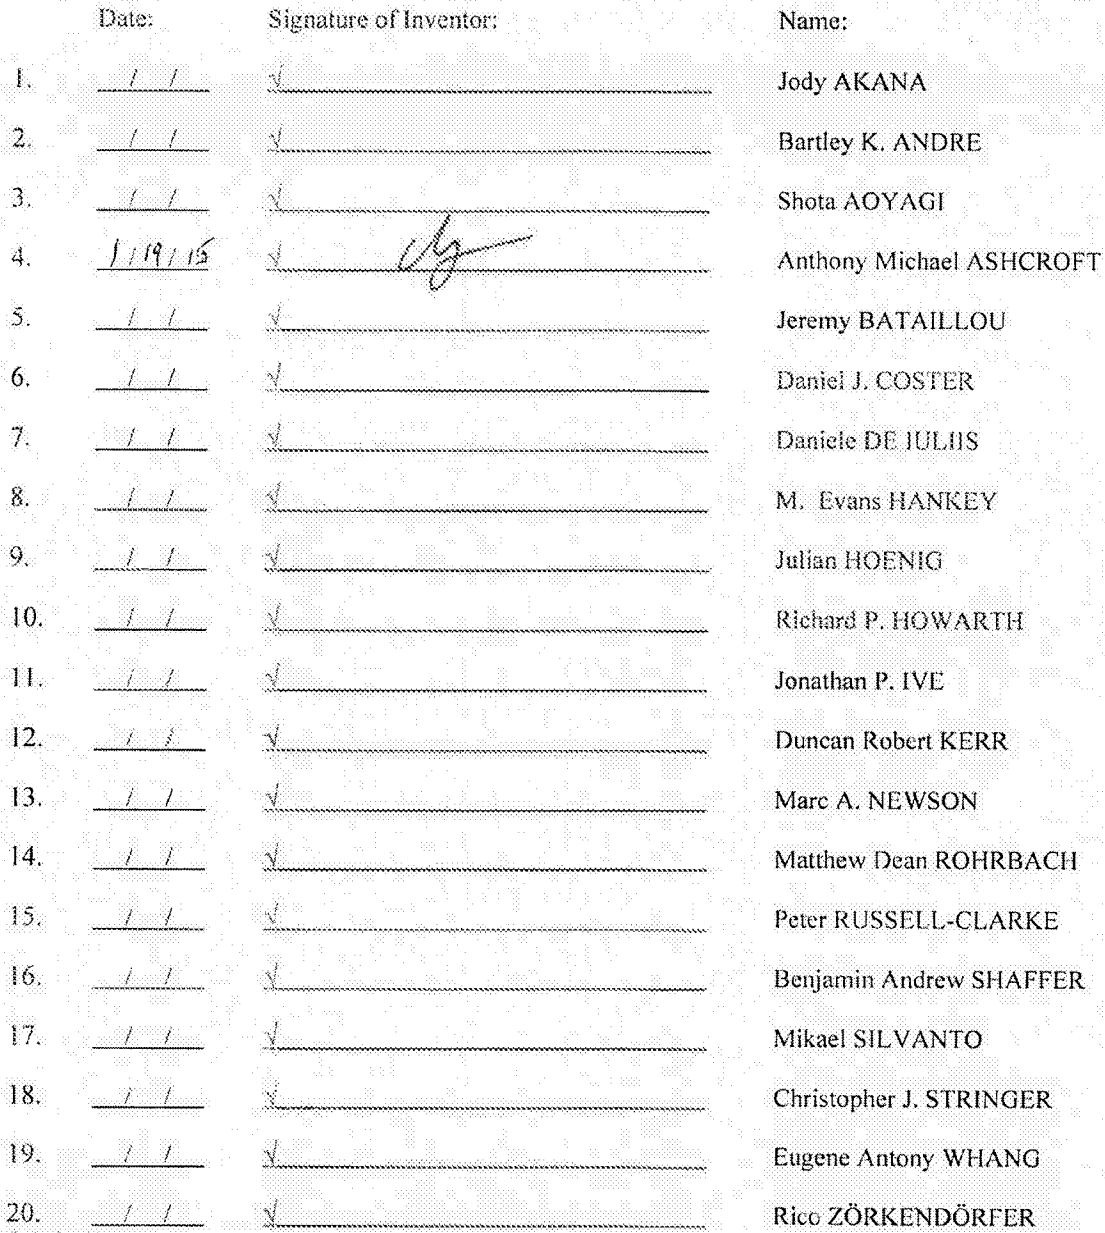 Date: Signature of Inventor: Name:
1. / / √ Jody AKANA
2. / / √ Bartley K. ANDRE
3. / / √ Shota AOYAGI
4. 1/19/15 √ Anthony Michael ASHCROFT
5. / / √ Jeremy BATAILLOU
6. / / √ Daniel J. COSTER
7. / / √ Daniele DE IULIIS
8. / / √ M. Evans HANKEY
9. / / √ Julian HOENIG
10. / / √ Richard P. HOWARTH
11. / / √ Jonathan P. IVE
12. / / √ Duncan Robert KERR
13. / / √ Marc A. NEWSON
14. / / √ Matthew Dean ROHRBACH
15. / / √ Peter RUSSELL-CLARKE
16. / / √ Benjamin Andrew SHAFFER
17. / / √ Mikael SILVANTO
18. / / √ Christopher J. STRINGER
19. / / √ Eugene Antony WHANG
20. / / √ Rico ZÖRKENDÖRFER